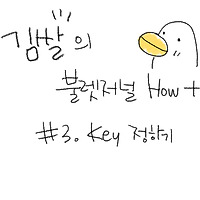 김짤의
불렛저널 How t
#3. Key 정하기